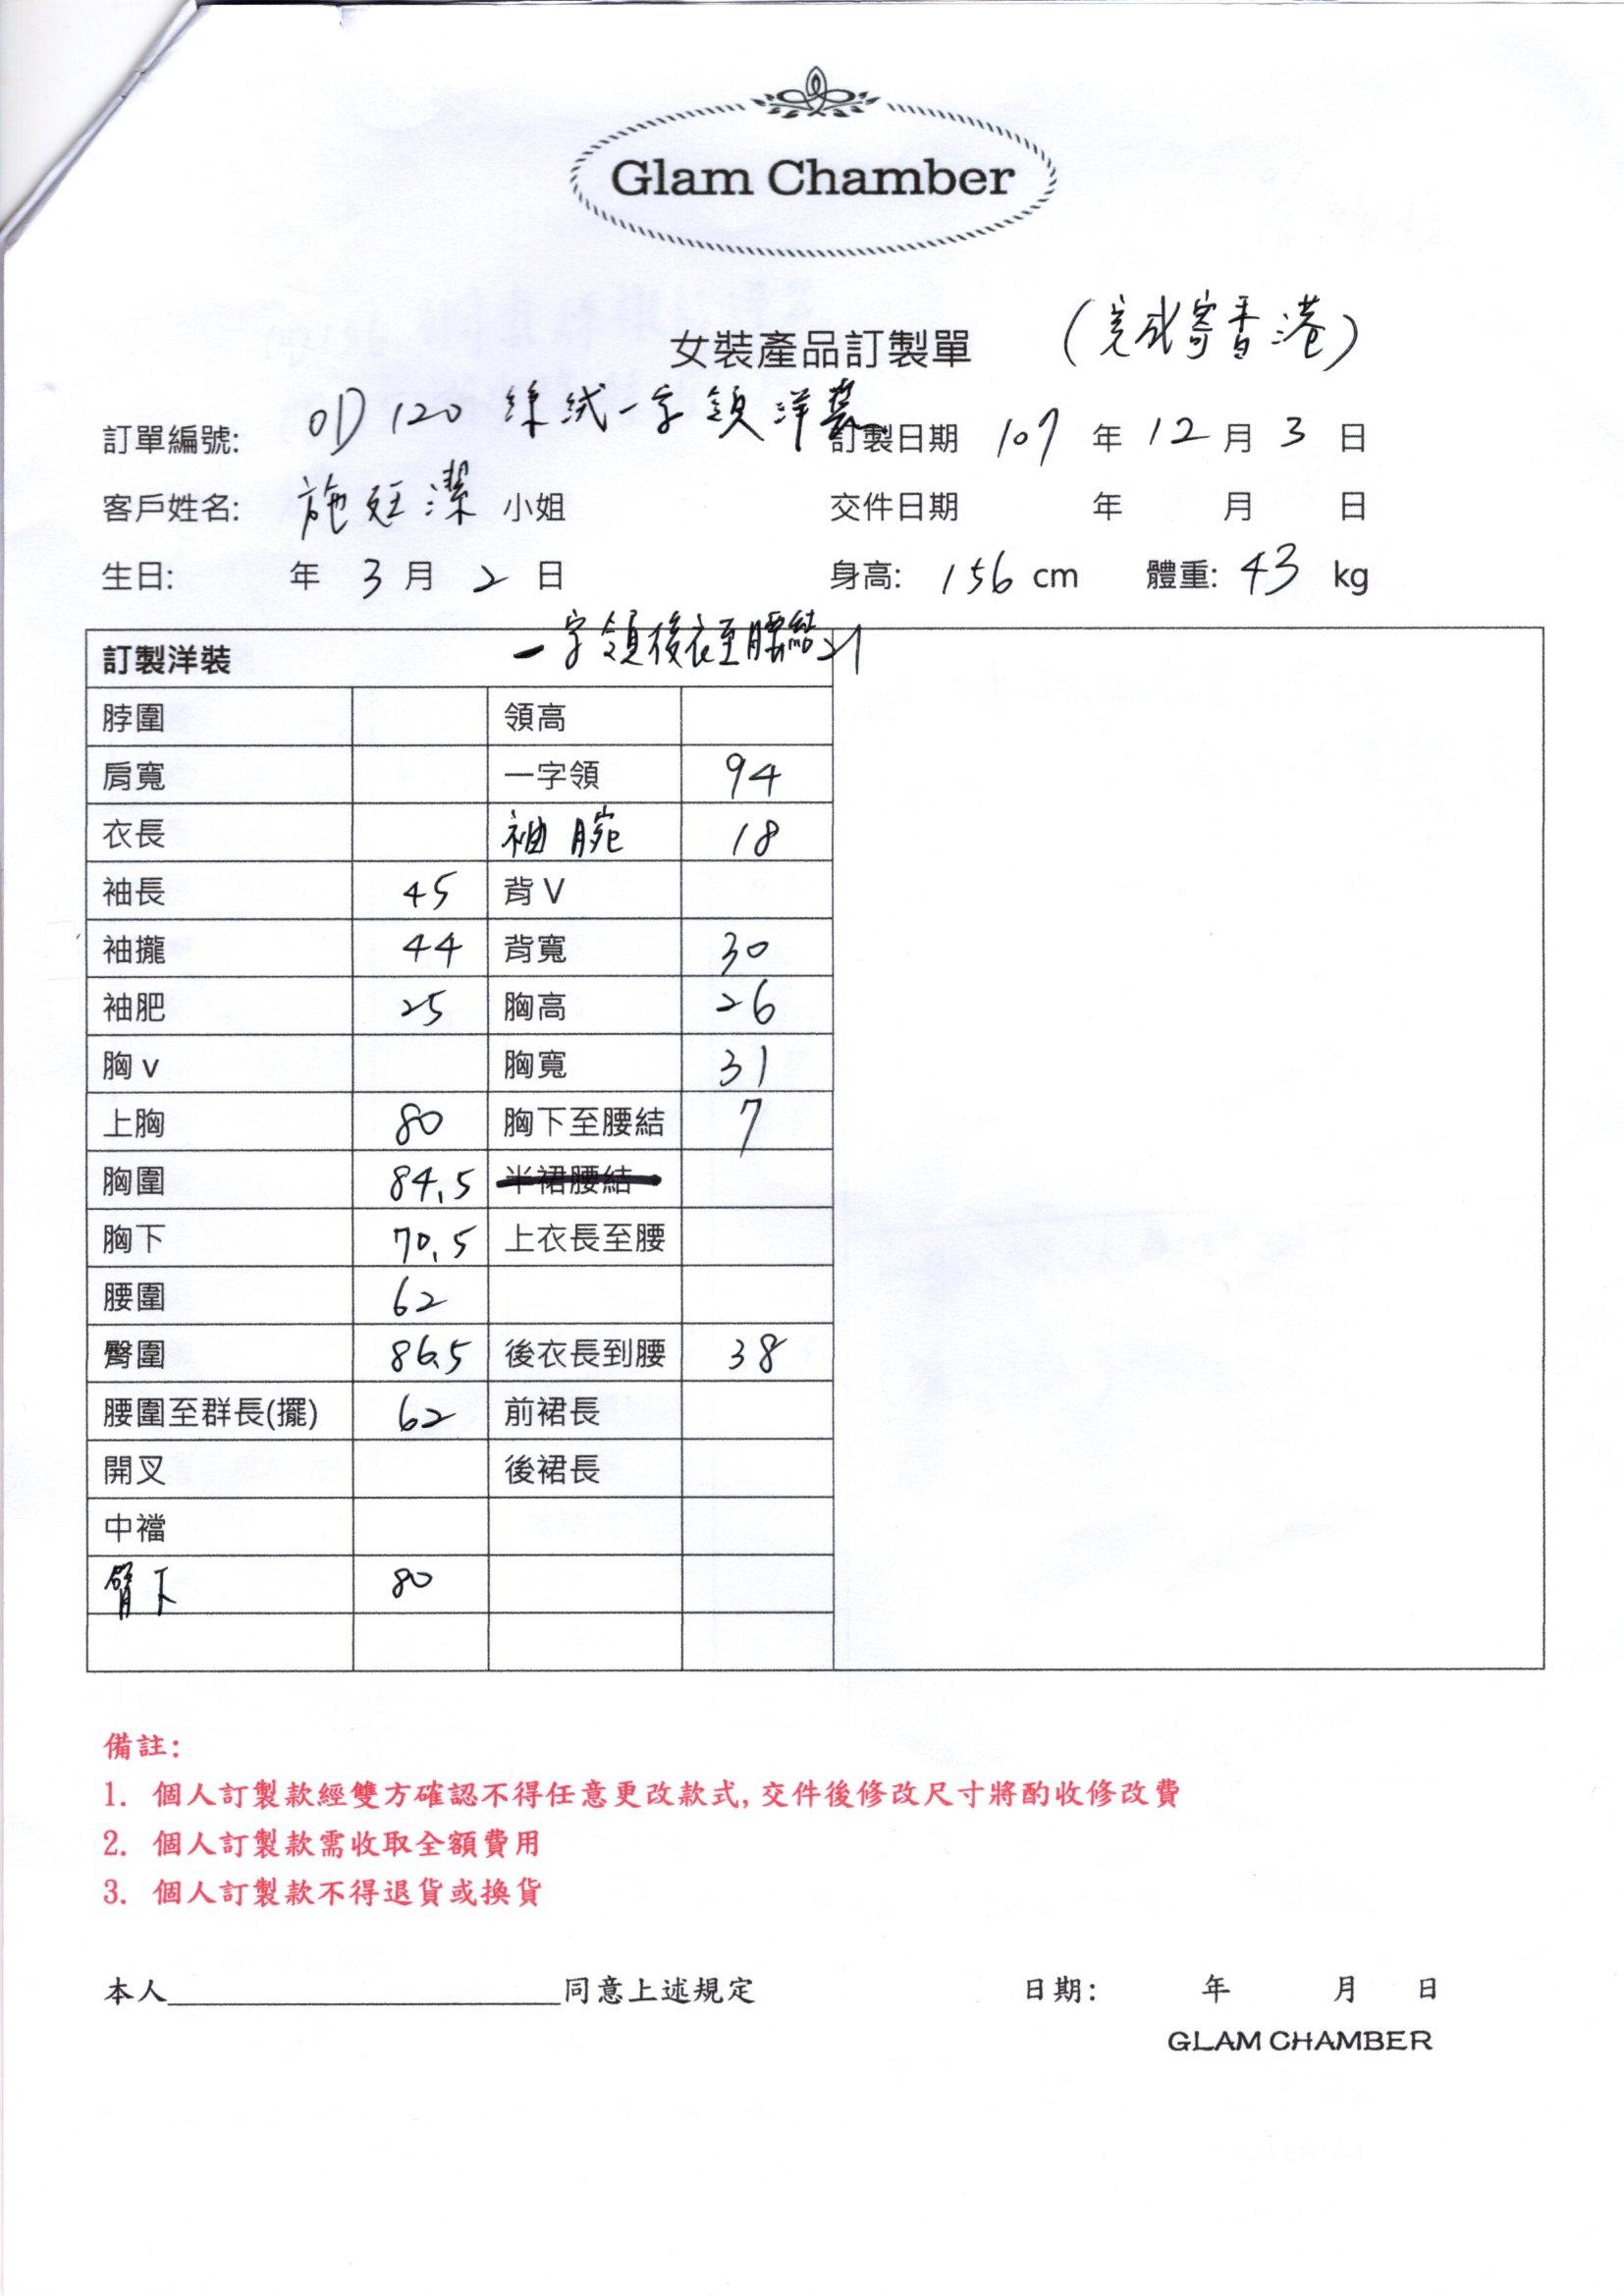 Glam Chamber
女裝產品訂製單 (完成寄香港)
訂單編號: OD120 絲絨一字領洋裝 訂製日期 107 年 12 月 3 日
客戶姓名: 施廷潔 小姐 交件日期 年 月 日
生日: 年 3 月 2 日 身高: 156 cm 體重: 43 kg
訂製洋裝 一字領後衣至腰結 21
脖圍 領高
肩寬 一字領 94
衣長 袖腕 18
袖長 45 背 V
袖攏 44 背寬 30
袖肥 25 胸高 26
胸 v 胸寬 31
上胸 80 胸下至腰結 7
胸圍 84.5 半裙腰結
胸下 70.5 上衣長至腰
腰圍 62
臀圍 86.5 後衣長到腰 38
腰圍至群長(擺) 62 前裙長
開叉 後裙長
中襠
臂下 80
備註:
1. 個人訂製款經雙方確認不得任意更改款式, 交件後修改尺寸將酌收修改費
2. 個人訂製款需收取全額費用
3. 個人訂製款不得退貨或換貨
本人 同意上述規定 日期: 年 月 日
GLAM CHAMBER